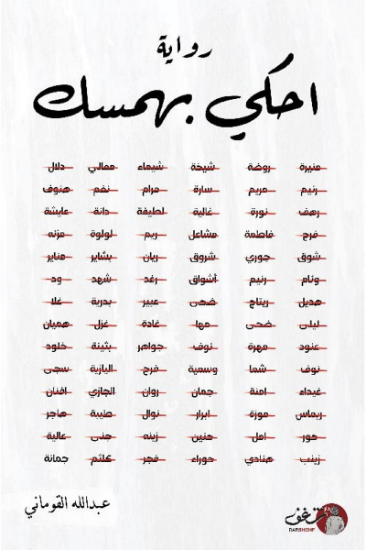 رواية
احكي بهمسك
منيرة روضة شيخة شيماء معالي دلال
رنيم مريم سارة مرام نغم هنوف
رهف نورة غالية لطيفة دانة عايشة
فرح فاطمة مشاعل ريم لولوة مزنه
شوق جوري شروق ريان بشاير مناير
وئام رنيم أشواق رغد شهد ود
هديل ريتاج ضحى عبير بدرية غلا
ليلى ضحى مها غادة غزل هميان
عنود مهرة نوف جواهر بثينة خلود
نوف شما وسمية فرح اليازية سجى
غيداء امنة جمان روان الجازي افنان
ريماس موزة ابرار نوال طيبة هاجر
حور امل حنين زينه منى عالية
زينب هنادي حوراء فجر كلثم جمانة
عبدالله القوماني